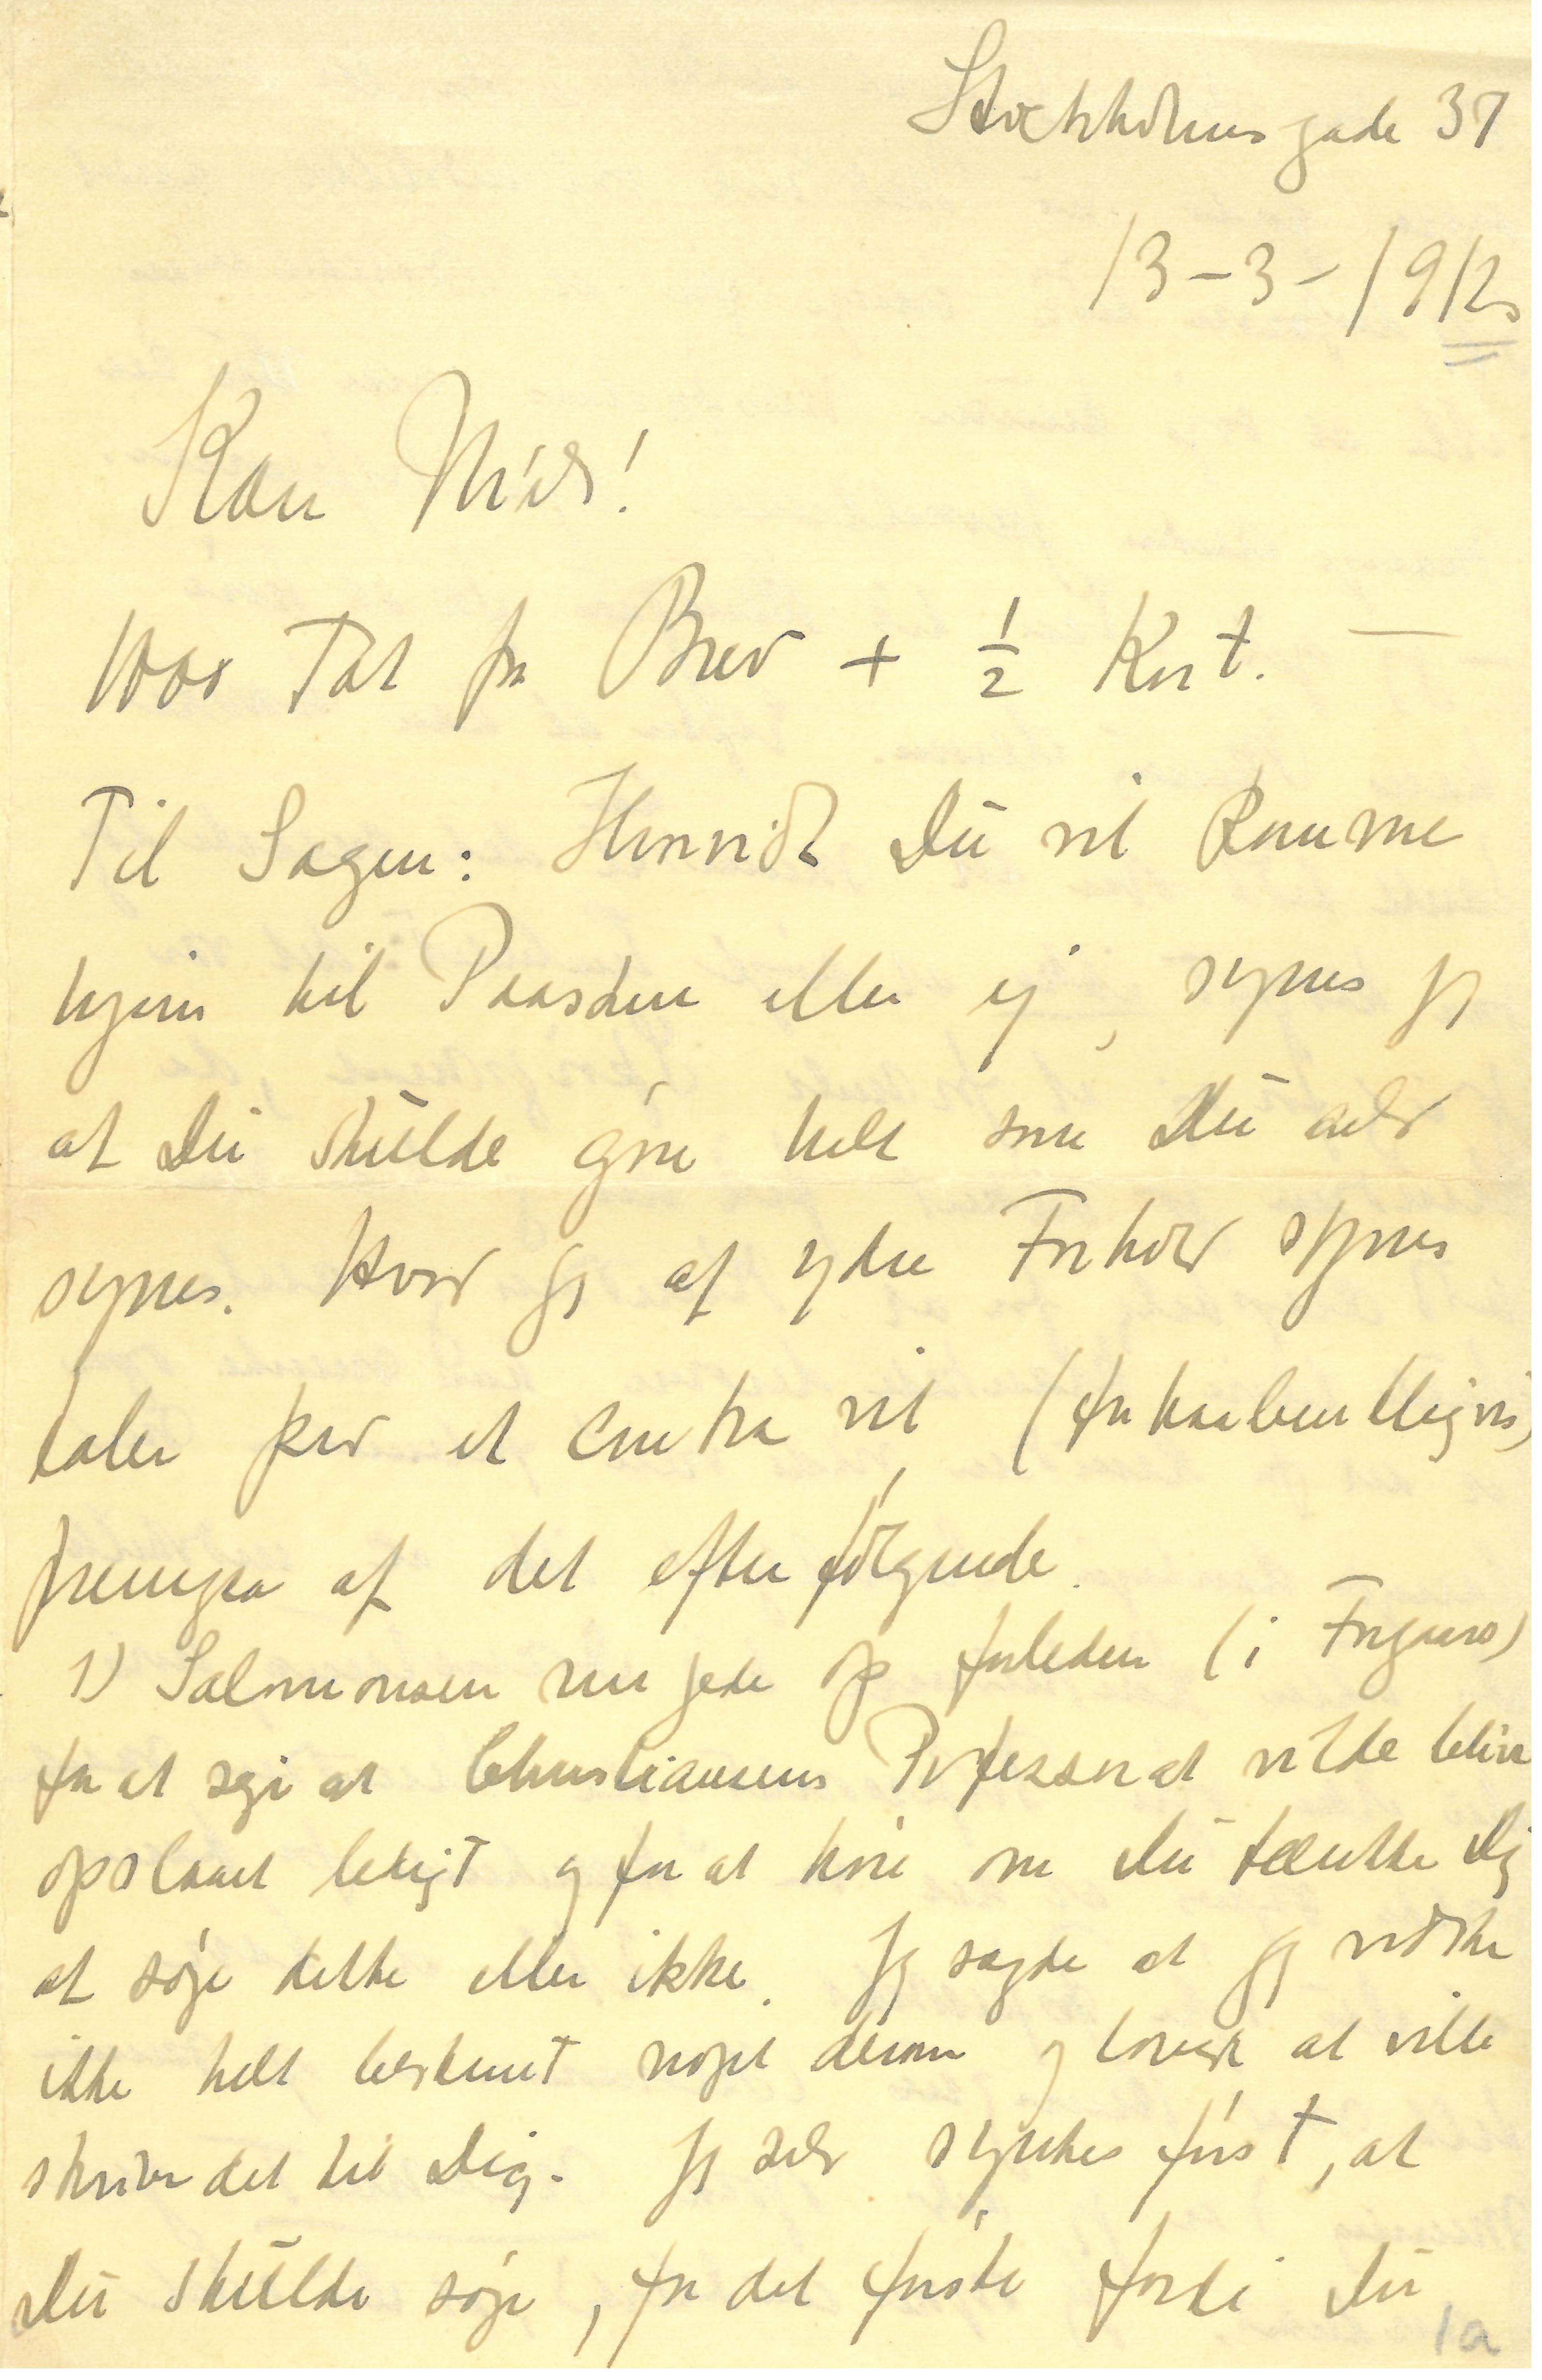 Stockholmsgade 37
13-3-1912
Kære Niels!
1000 Tak for Brev + ½ Kort. —
Til Sagen: Hvorvidt Du vil komme
hjem til Paasken eller ej, synes jeg
at Du skulde gøre helt som Du selv
synes. Hvad jeg af ydre Forhold synes
taler pro et contra vil (forhaabentligvis)
fremgaa af det efterfølgende.
1) Salomonsen ringede op forleden (i Forgaars)
for at sige at Christiansens Professorat vilde blive
opslaaet ledigt og for at høre om Du tænkte Dig
at søge dette eller ikke. Jeg sagde at jeg vidste
ikke helt bestemt noget derom og lovede at ville
skrive det til Dig. Jeg selv syntes først, at
Du skulde søge, for det første fordi Du
1a